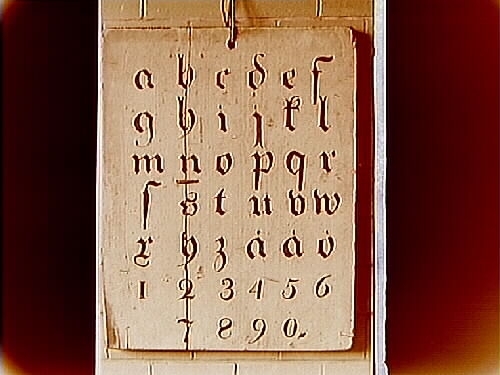 a b c d e f
g h i j k l
m n o p q r
ſ s t u v w
x y z å ä ö
1 2 3 4 5 6
7 8 9 0.